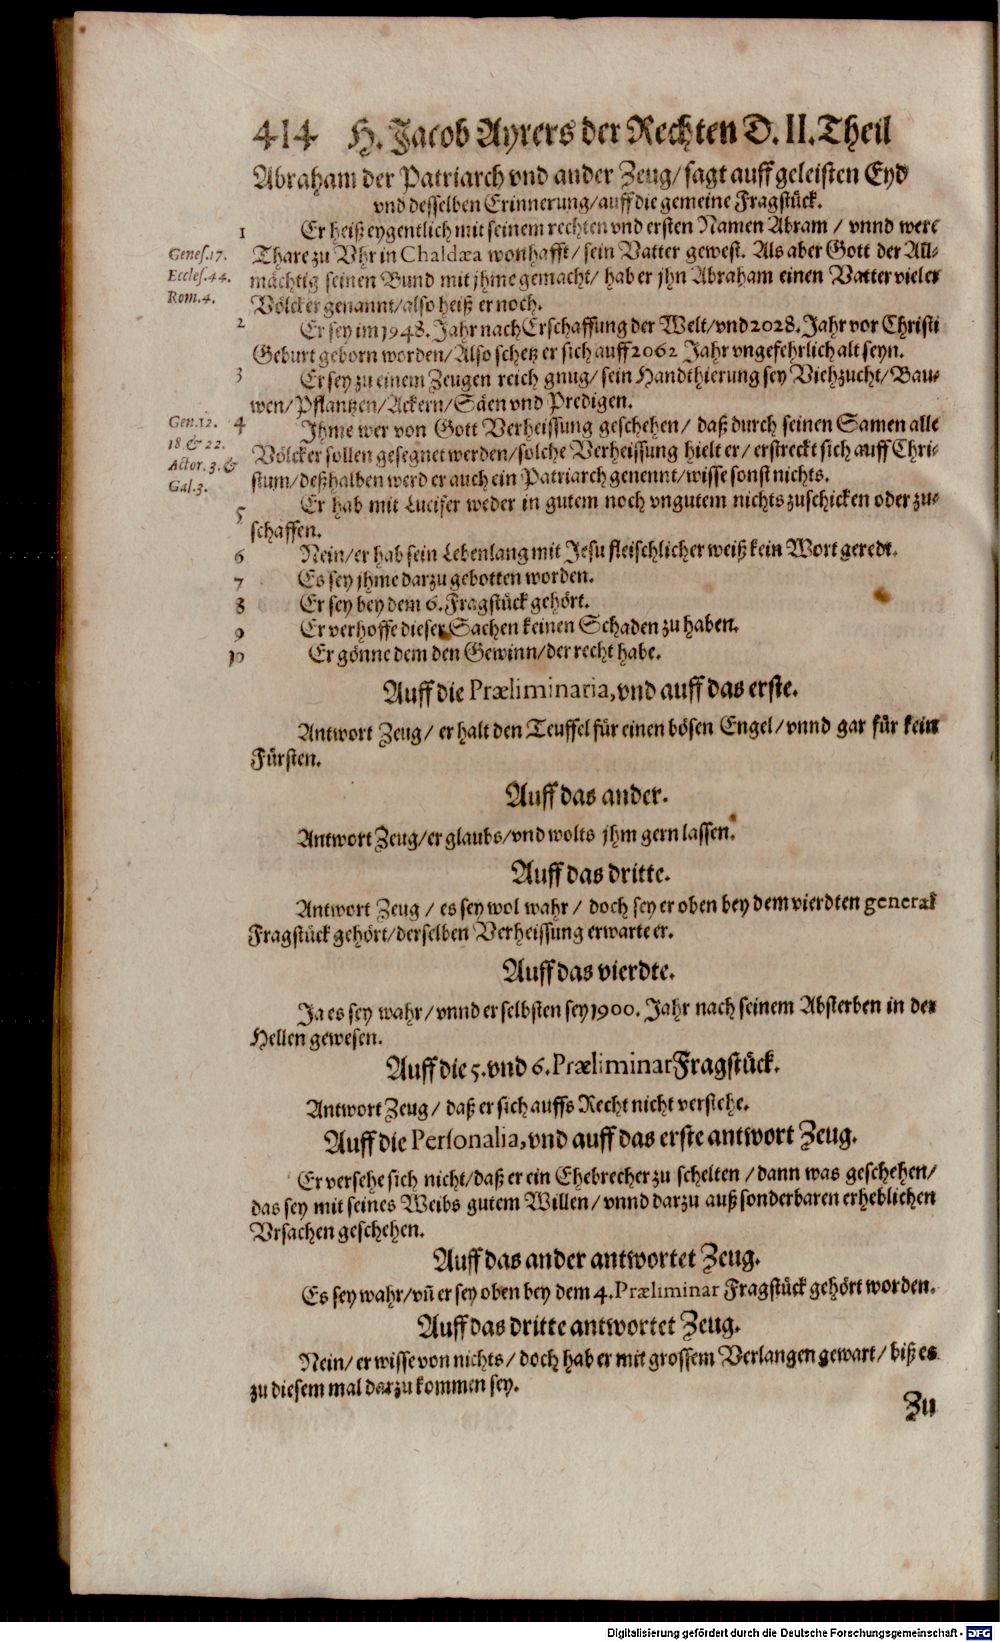 414 H. Jacob Ayrers der Rechten D. II. Theil
Abraham der Patriarch vnd ander Zeug/ sagt auff geleisten Eyd
vnd desselben Erinnerung/ auff die gemeine Fragstück.
1 Er heiß eygentlich mit seinem rechten vnd ersten Namen Abram / vnnd were
Genes. 17. Thare zu Vhr in Chaldæa wonhafft/ sein Vatter gewest. Als aber Gott der All-
Eccles. 44. mächtig seinen Bund mit jhme gemacht/ hab er jhn Abraham einen Vatter vieler
Rom. 4. Völcker genannt/ also heiß er noch.
2 Er sey im 1948. Jahr nach Erschaffung der Welt/ vnd 2028. Jahr vor Christi
Geburt geborn worden/ Also schetz er sich auff 2062 Jahr vngefehrlich alt seyn.
3 Er sey zu einem Zeugen reich gnug/ sein Handthierung sey Viehzucht/ Bau-
wen/ Pflantzen/ Ackern/ Säen vnd Predigen.
Gen. 12. 4 Ihme wer von Gott Verheissung geschehen/ daß durch seinen Samen alle
18 & 22. Völcker sollen gesegnet werden/ solche Verheissung hielt er/ erstreckt sich auff Chri-
Actor. 3. & stum/ deßhalben werd er auch ein Patriarch genennt/ wisse sonst nichts.
Gal. 3.
5 Er hab mit Lucifer weder in gutem noch vngutem nichts zuschicken oder zu-
schaffen.
6 Nein/ er hab sein Lebenlang mit Jesu fleischlicher weiß kein Wort geredt.
7 Es sey jhme darzu gebotten worden.
8 Er sey bey dem 6. Fragstück gehört.
9 Er verhoffe dieser Sachen keinen Schaden zu haben.
10 Er gönne dem den Gewinn/ der recht habe.
Auff die Præliminaria, vnd auff das erste.
Antwort Zeug/ er halt den Teuffel für einen bösen Engel/ vnnd gar für kein
Fürsten.
Auff das ander.
Antwort Zeug/ er glaubs/ vnd wolts jhm gern lassen.
Auff das dritte.
Antwort Zeug / es sey wol wahr / doch sey er oben bey dem vierdten general
Fragstück gehört/ derselben Verheissung erwarte er.
Auff das vierdte.
Ja es sey wahr/ vnnd er selbsten sey 1900. Jahr nach seinem Absterben in der
Hellen gewesen.
Auff die 5. vnd 6. Præliminar Fragstück.
Antwort Zeug/ daß er sich auffs Recht nicht verstehe.
Auff die Personalia, vnd auff das erste antwort Zeug.
Er versehe sich nicht/ daß er ein Ehebrecher zu schelten / dann was geschehen/
das sey mit seines Weibs gutem Willen/ vnnd darzu auß sonderbaren erheblichen
Vrsachen geschehen.
Auff das ander antwortet Zeug.
Es sey wahr/ vñ er sey oben bey dem 4. Præliminar Fragstück gehört worden.
Auff das dritte antwortet Zeug.
Nein/ er wisse von nichts/ doch hab er mit grossem Verlangen gewart/ biß es
zu diesem mal darzu kommen sey.
Zu
Digitalisierung gefördert durch die Deutsche Forschungsgemeinschaft - DFG